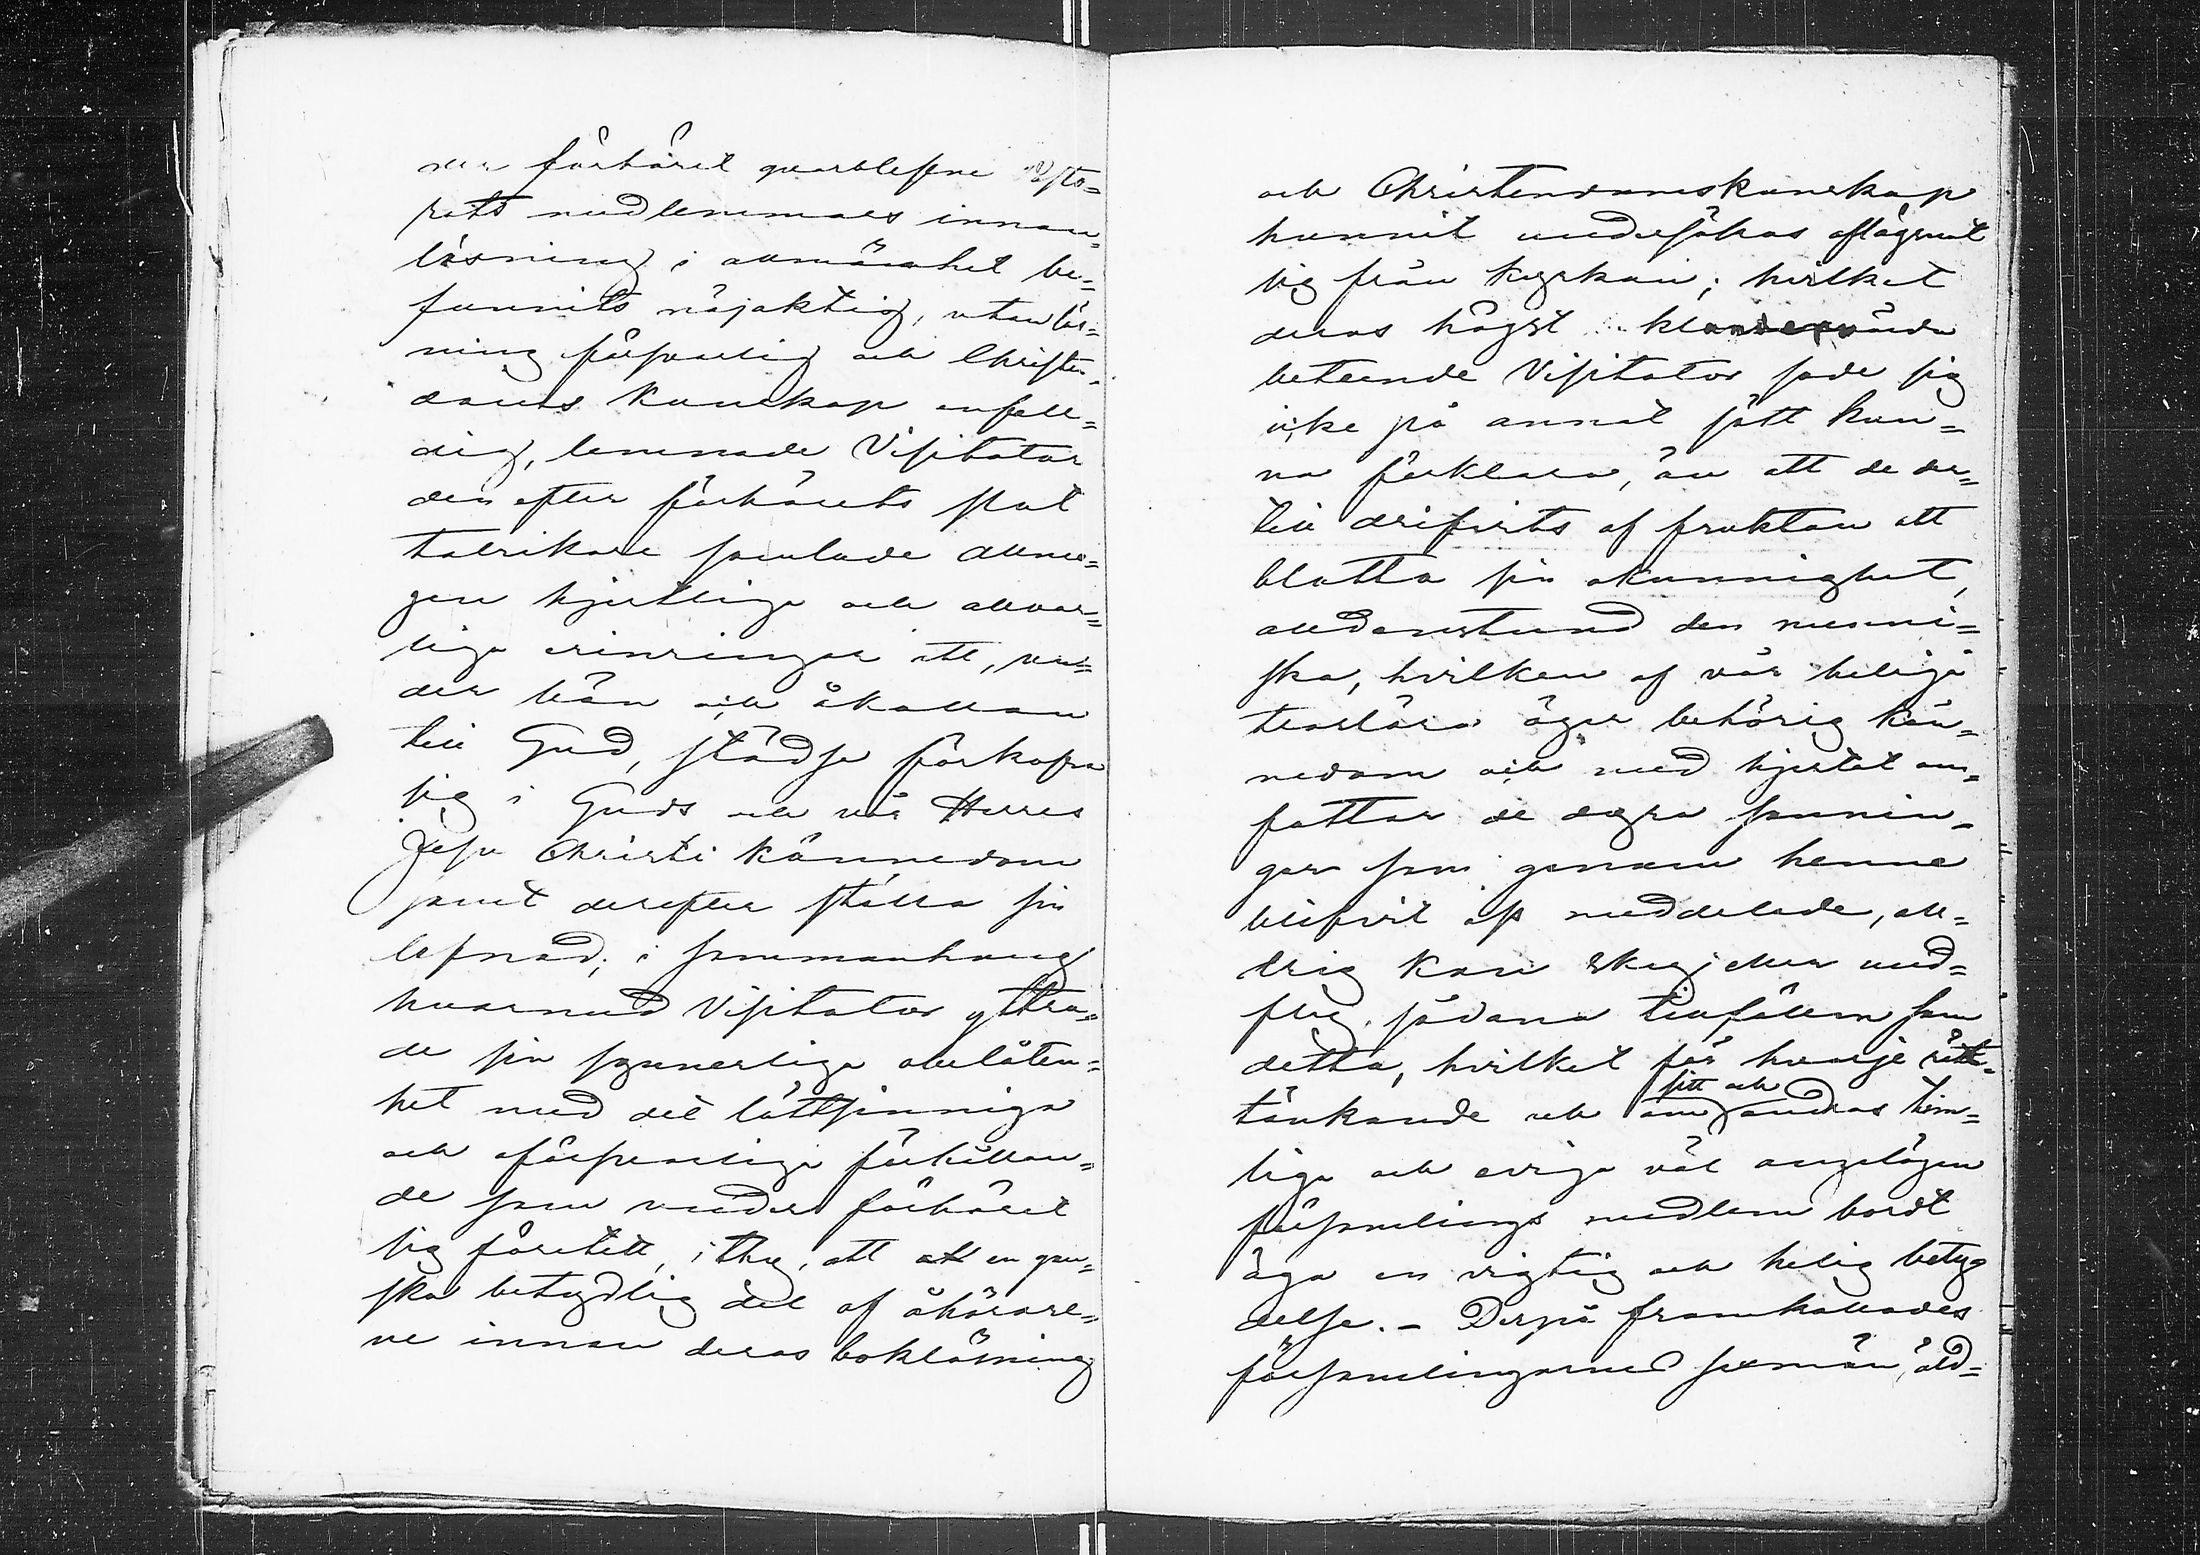 der förhöret quarblefne Pasto=
rats medlemmars innan=
läsning i allmänhet be=
funnits nöjaktig, utanläs=
ning försvarlig och Christen=
doms kunskap enfall=
dig, lemnade Visitator
den efter förhörets slut
talrikare samlade Allmo=
gen hjertliga och allvar=
liga erinringar att, un=
der bön och åkallan
till Gud, städse förkofra
sig i Guds och vår Herres
Jesu Christi kännedom
samt derefter ställa sin
lefnad; i sammanhang
hvarmed Visitator yttra=
de sin synnerliga obelåten=
het med det lättsinniga
och oförsvarliga förhållan=
de som under förhöret
sig företett, i thy, att en gan=
ska betydlig del af åhörare=
ne innan deras bokläsning
och Christendomskunskap
hunnit undersökas aflägsnat
sig från kyrkan; hvilket
deras högst klandervärda
beteende Visitator sade sig
icke på annat sätt kun=
na förklara, än att de der=
till drifvits af fruktan att
blotta sin okunnighet,
alldenstund den menni=
ska, hvilken af vår heliga
troslära äger behörig kän=
nedom och med hjertat om=
fattar de dyra sannin=
gar som genom henne
blifvit oss meddelade, all=
drig kan sky eller und=
fly sådana tillfällen som
detta, hvilket för hvarje rätt=
tänkande och om sitt och andras tim=
liga och eviga väl angelägen
församlings medlem bordt
äga en vigtig och helig bety=
delse. - Derpå framkallades
församlingarnes sexmän, åld=